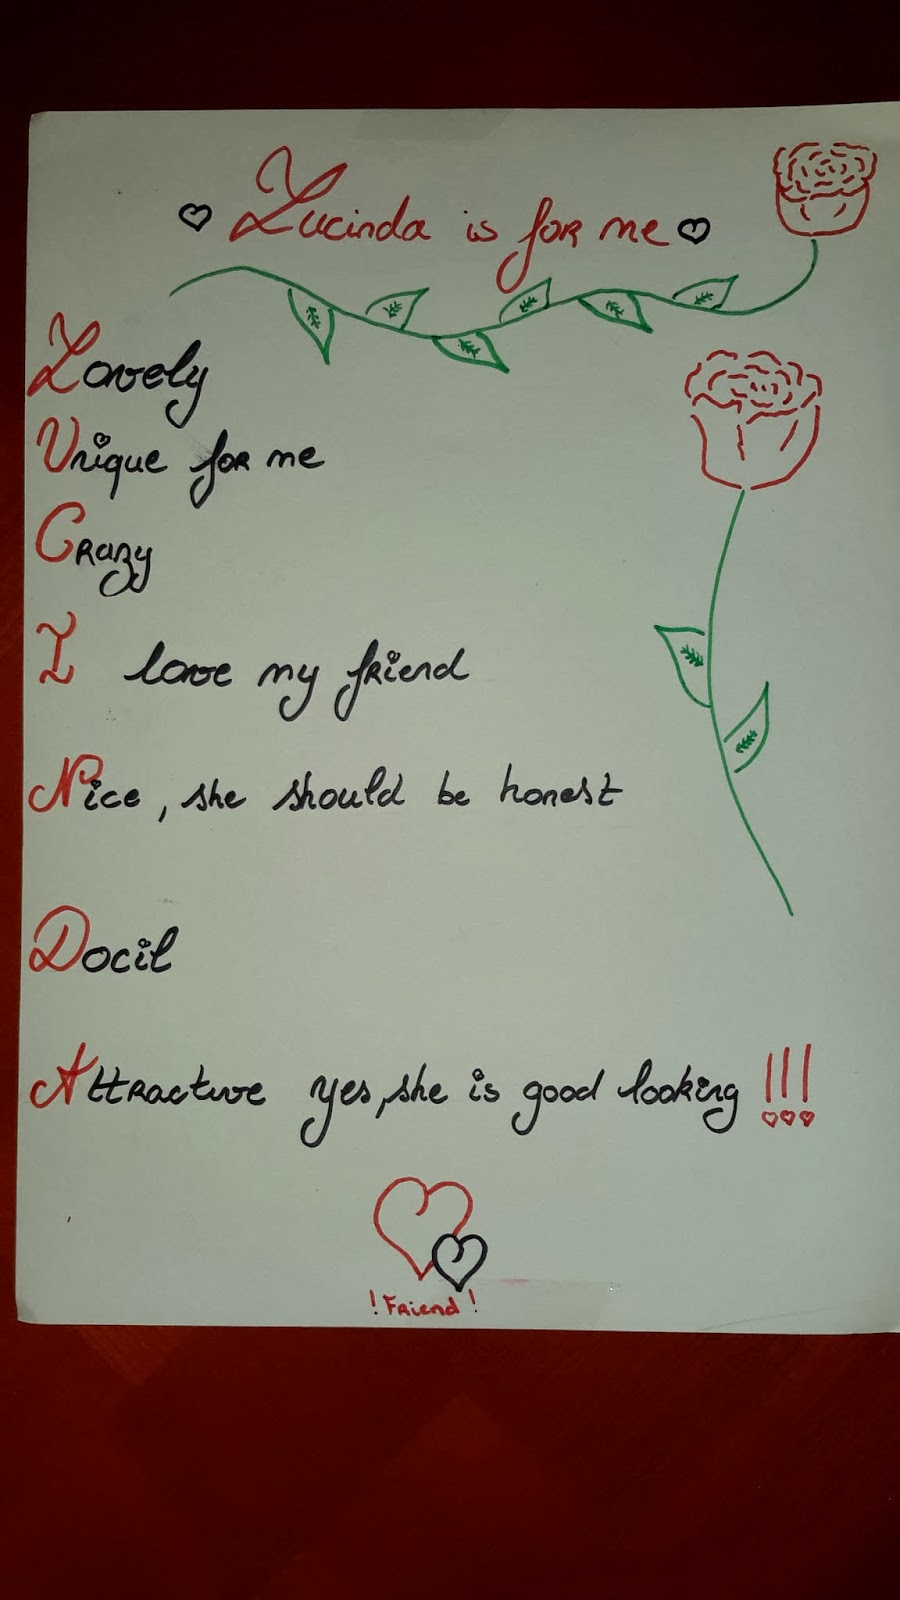 Lucinda is for me
Lovely
Unique for me
Crazy
I love my friend
Nice, she should be honest
Docil
Attractive yes, she is good looking !!!
! Friend !